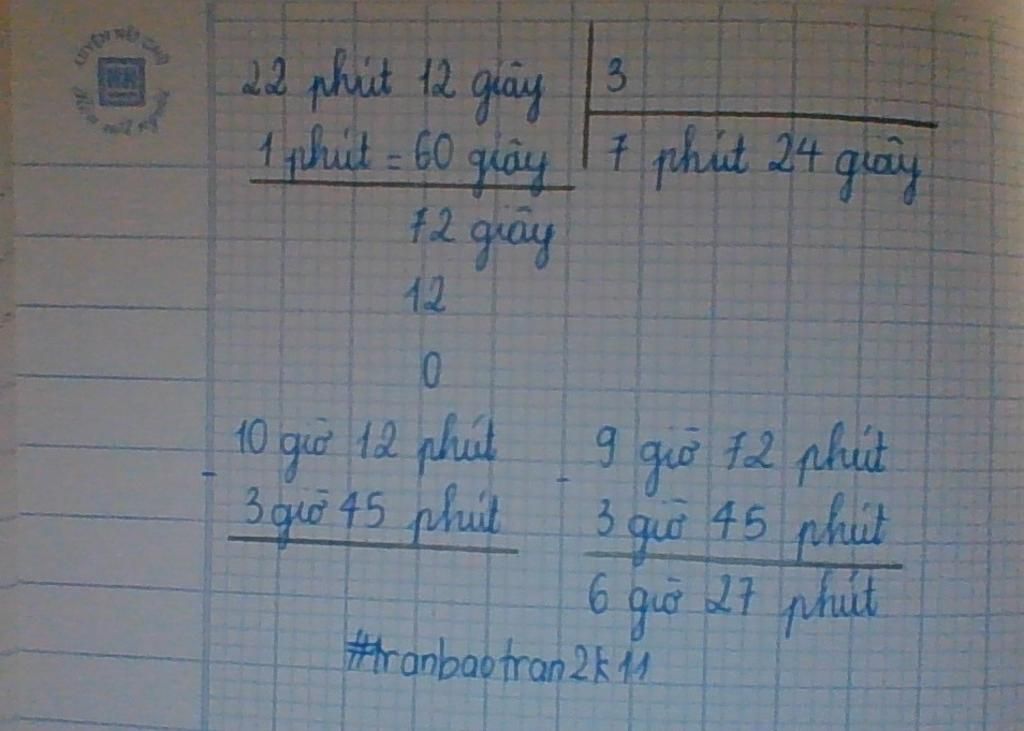 22 phút 12 giây 3
1 phút = 60 giây 7 phút 24 giây
72 giây
12
0
10 giờ 12 phút 9 giờ 72 phút
- -
3 giờ 45 phút 3 giờ 45 phút
6 giờ 27 phút
#tranbaotran2k11